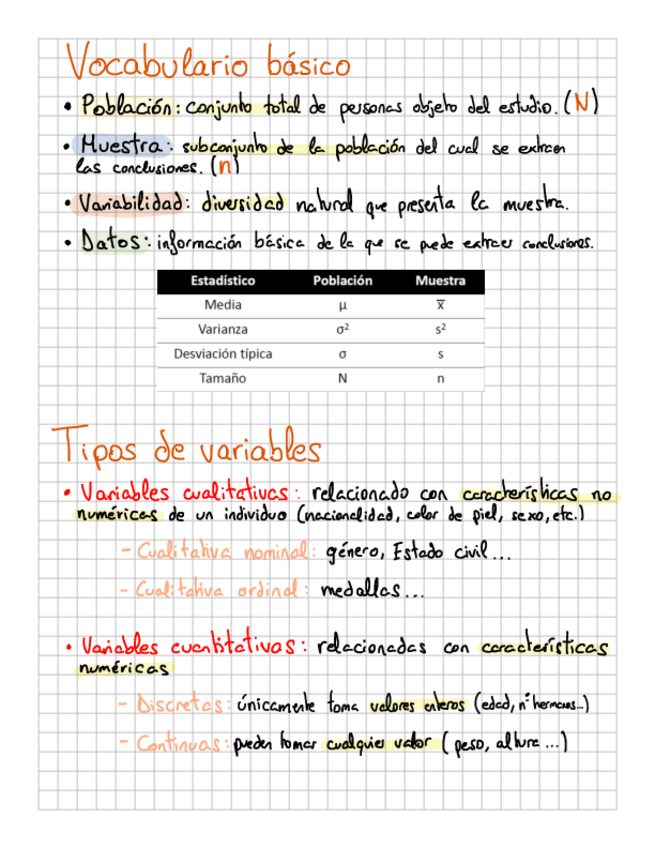 Vocabulario básico
• Población: conjunto total de personas objeto del estudio. (N)
• Muestra: subconjunto de la población del cual se extraen
las conclusiones. (n)
• Variabilidad: diversidad natural que presenta la muestra.
• Datos: información básica de la que se puede extraer conclusiones.
Estadístico Población Muestra
Media μ x̅
Varianza σ² s²
Desviación típica σ s
Tamaño N n
Tipos de variables
• Variables cualitativas: relacionado con características no
numéricas de un individuo (nacionalidad, color de piel, sexo, etc.)
- Cualitativa nominal: género, Estado civil...
- Cualitativa ordinal: medallas...
• Variables cuantitativas: relacionadas con características
numéricas
- Discretas: únicamente toma valores enteros (edad, nº hermanos...)
- Continuas: pueden tomar cualquier valor (peso, altura...)